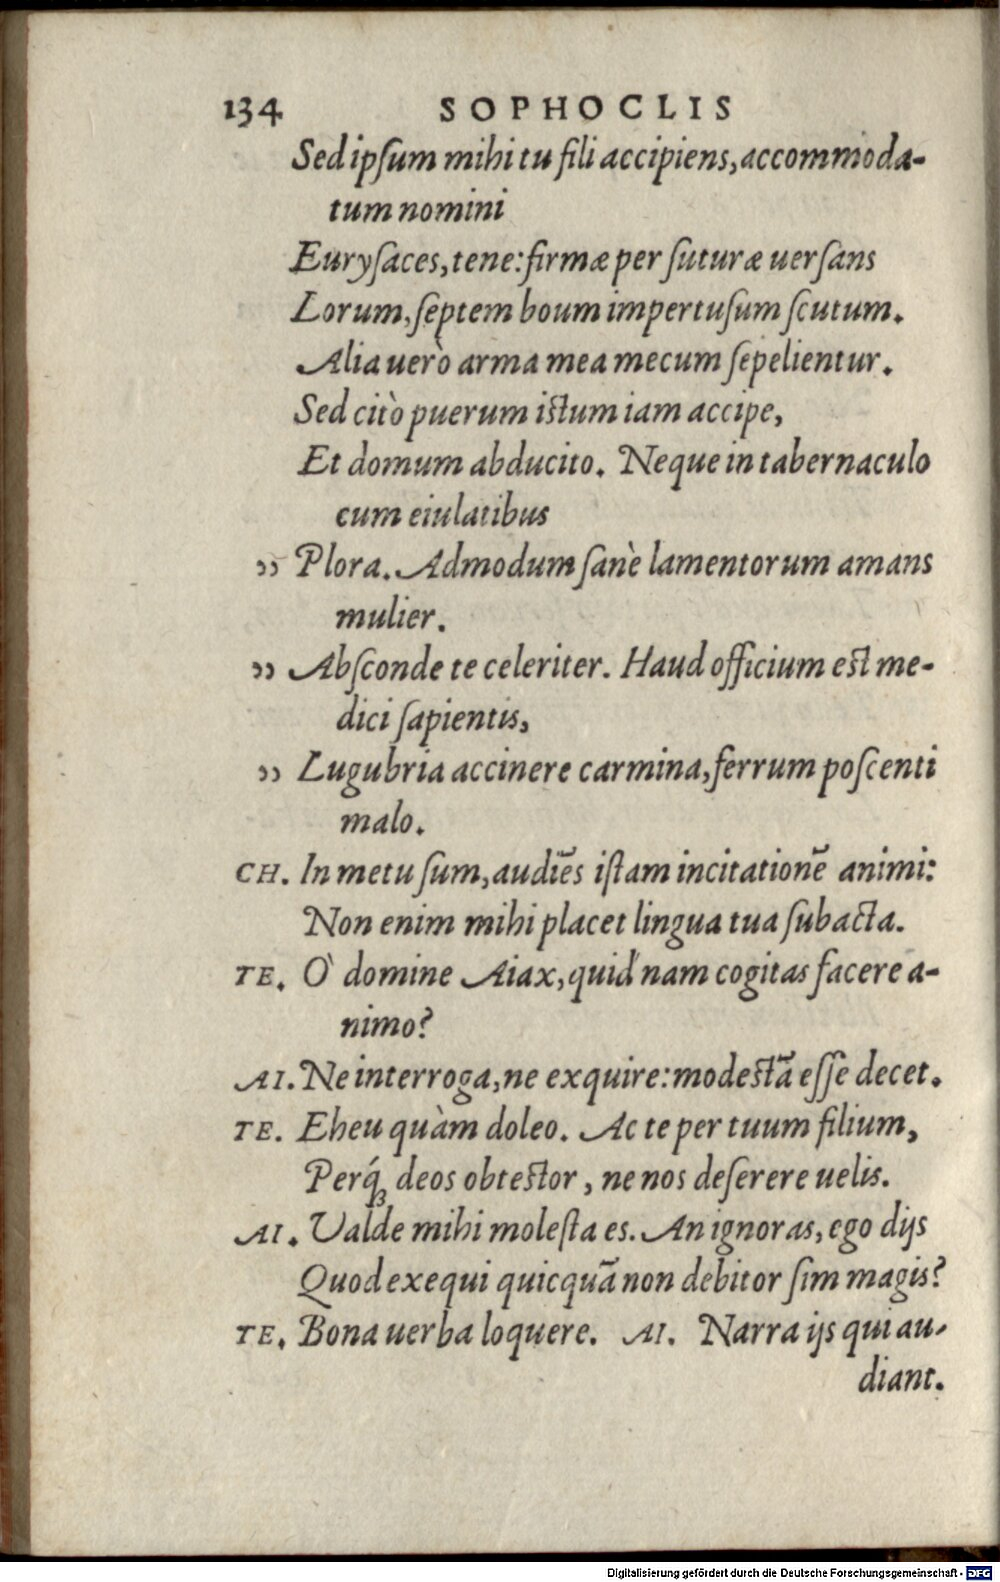 134 SOPHOCLIS
Sed ipſum mihi tu fili accipiens, accommoda-
tum nomini
Euryſaces, tene: firmæ per ſuturæ uerſans
Lorum, ſeptem boum impertuſum ſcutum.
Alia uerò arma mea mecum ſepelientur.
Sed citò puerum iſtum iam accipe,
Et domum abducito. Neque in tabernaculo
cum eiulatibus
„ Plora. Admodum ſanè lamentorum amans
mulier.
„ Abſconde te celeriter. Haud officium eſt me-
dici ſapientis,
„ Lugubria accinere carmina, ferrum poſcenti
malo.
CH. In metu ſum, audiẽs iſtam incitationẽ animi:
Non enim mihi placet lingua tua ſubacta.
TE. Ò domine Aiax, quid nam cogitas facere a-
nimo?
AI. Ne interroga, ne exquire: modeſtã eſſe decet.
TE. Eheu quàm doleo. Ac te per tuum filium,
Perq́ꝫ deos obteſtor, ne nos deſerere uelis.
AI. Valde mihi moleſta es. An ignoras, ego dijs
Quod exequi quicquã non debitor ſim magis?
TE. Bona uerba loquere. AI. Narra ijs qui au-
diant.
Digitalisierung gefördert durch die Deutsche Forschungsgemeinschaft - DFG